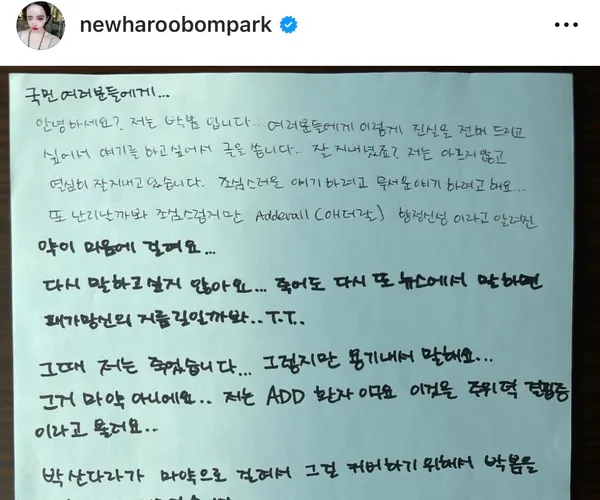 newharoobompark
국민 여러분들에게...
안녕하세요? 저는 박봄 입니다.. 여러분들에게 이렇게 진실을 전해 드리고
싶어서 얘기를 하고싶어서 글을 씁니다.. 잘 지내셨죠? 저는 아프지않고
열심히 잘지내고 있습니다. 조심스러운 얘기 하려고 무서운얘기 하려고 해요...
또 난리날까봐 조심스럽지만 Adderall (애더랄) 향정신성 이라고 알려진
약이 마음에 걸려요...
다시 말하고 싶지 않아요... 죽어도 다시 또 뉴스에서 말하면
패가망신의 지름길일까봐..T.T..
그때 저는 죽었습니다... 그렇지만 용기내서 말해요...
그거 마약 아니에요.. 저는 ADD 환자 이고요 이것을 주위력 결핍증
이라고 불러요..
박산다라가 마약으로 걸려서 그걸 커버하기 위해서 박봄을